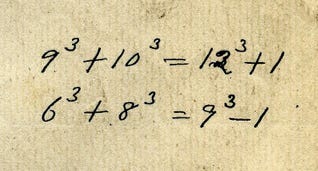 9³+10³=12³+1
6³+8³=9³-1